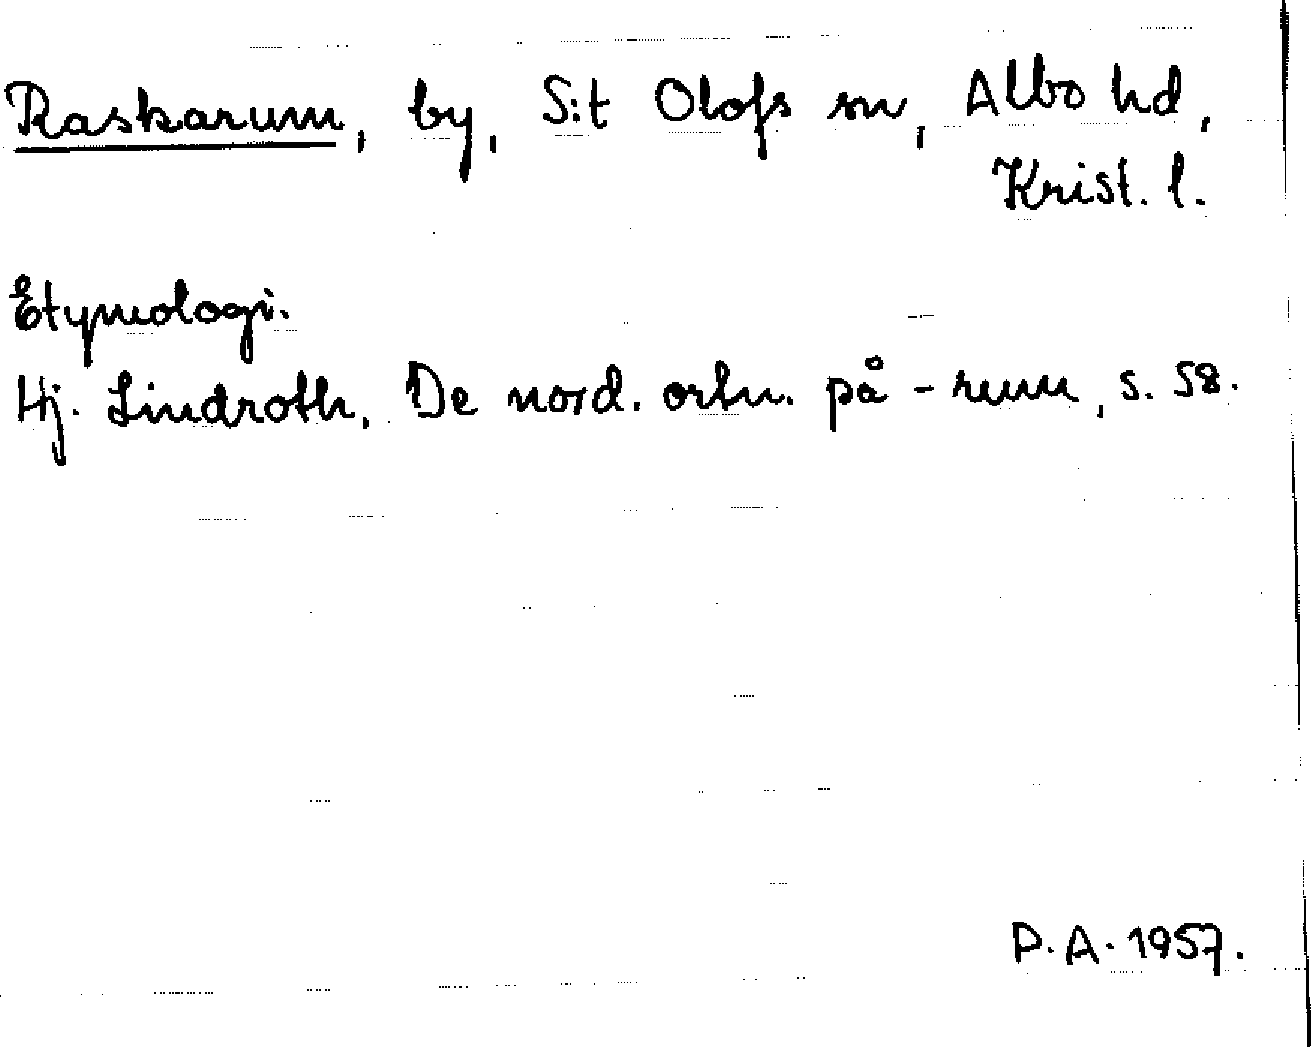 Raskarum, by, S:t Olofs sn, Albo hd,
Krist. l.
Etymologi.
Hj. Lindroth, De nord. ortn. på -rum, s. 58.
P.A. 1957.